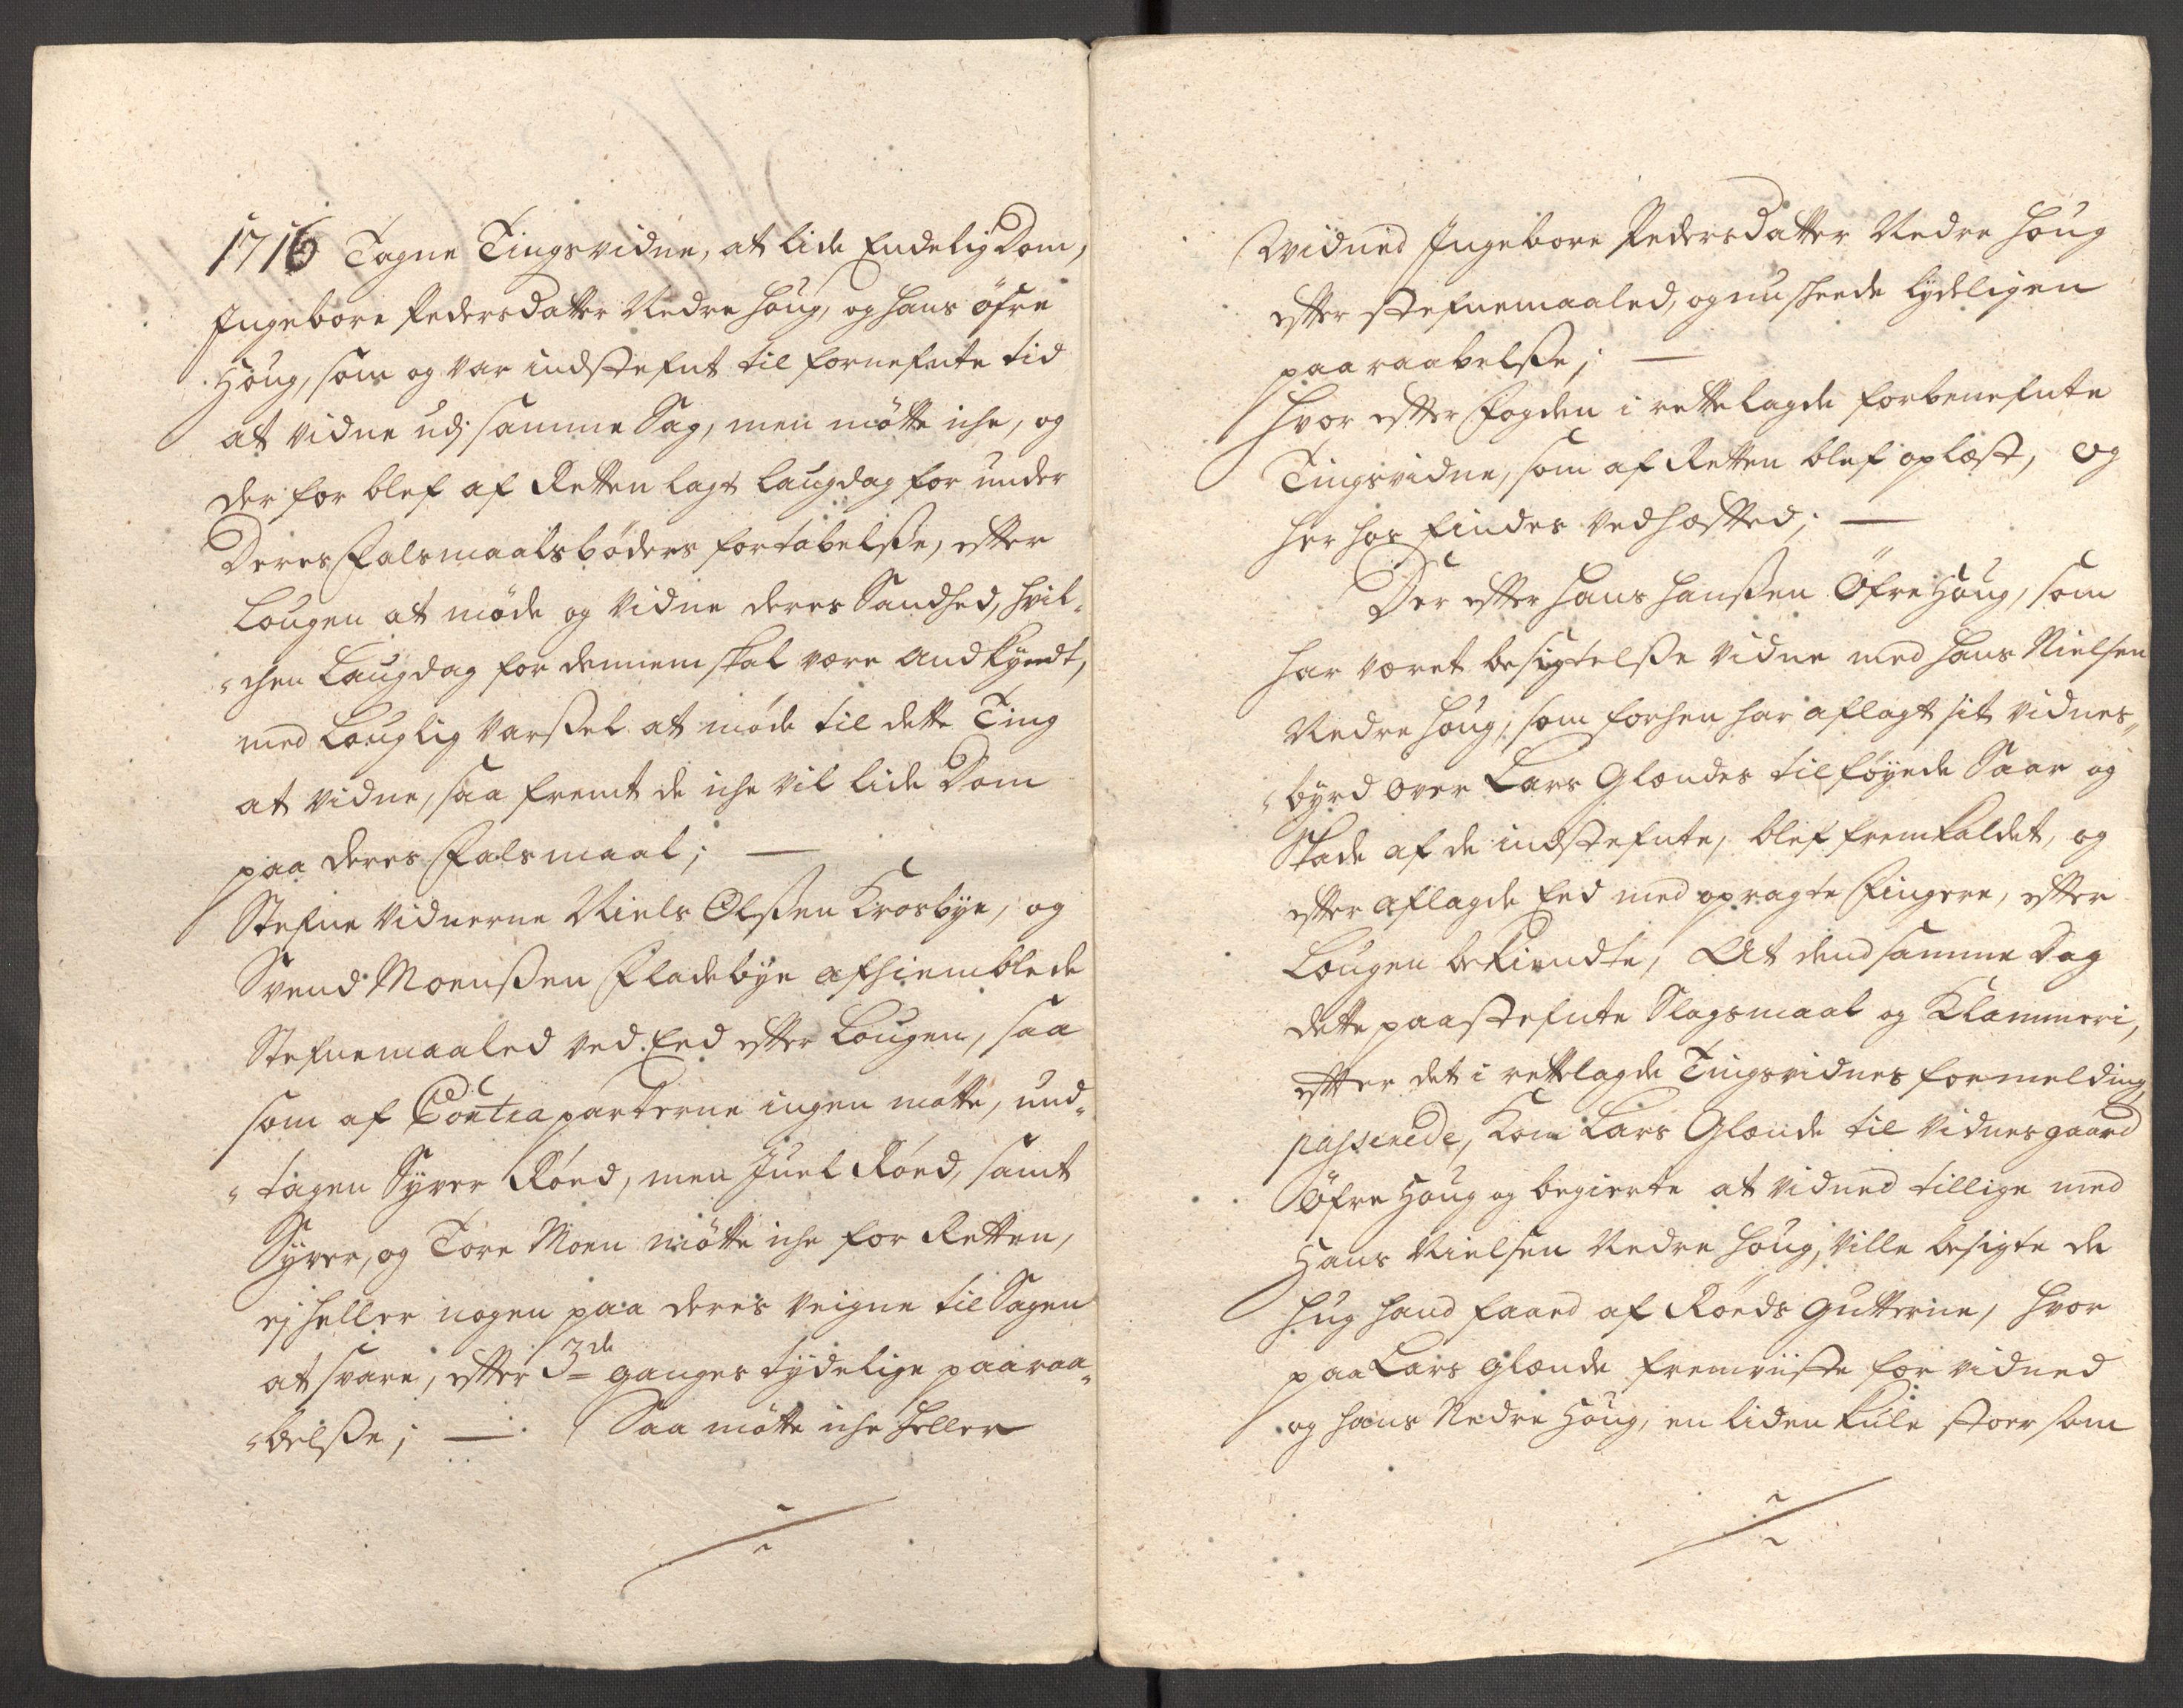 1716 Tagne Tingsvidne, at lide Endelig Dom,
Ingebore Pedersdatter Nedre Houg, og Hans öfre
Houg, som og var indstefnt til fornefnte tid
at vidne udj samme Sag, men mötte iche, og
der for blef af Retten lagt Laugdag for under
Deres Falsmaalsböders fortabelsse, efter
Lougen at möde og Vidne deres Sandhed, hvil-
-chen Laugdag for dennem skal være Andkyndt,
med Louglig Varssel at möde til dette Ting
at vidne, saa fremt de iche vil lide Dom
paa deres Falsmaal; —
Stefne Vidnerne Niels Olssen Krosbye, og
Svend Monssen Fladebye afhiemblede
Stefnemaaled ved Eed efter Lougen, saa
som af Contraparterne ingen mötte, und-
-tagen Syver Röed, men Juel Röed, samt
Syver, og Tore Moen mötte iche for Retten,
ej heller nogen paa deres Veigne til Sagen
at svare, efter 3de ganges tydelige paaraa-
-belsse; — Saa mötte iche heller
Widned Ingebore Pedersdatter Nedre Houg
efter Stefnemaaled, og nu skeede lydeligen
paaraabelsse; —
Hvor efter Fogden i rettelagde forbenefnte
Tingsvidne, som af Retten blef oplæst, og
her hos findes vedhæfted; —
Der efter Hans Hanssen Öfre Houg, som
har været besigtelsse Vidne med Hans Nielsen
Nedre Houg, som forhen har aflagt sit vidnes-
-byrd over Lars Glændes tilföyede Saar og
Skade af de indstefnte, blef fremkaldet, og
efter Aflagde Eed med opragte Fingere, efter
Lougen bekiendte, At dend samme Dag
dette paastefnte Slagsmaal og Klammeri,
efter det i rettelagde Tingsvidnes formelding,
passerede, Kom Lars Glænde til Vidnes gaard
Öfre Houg og begierte at Vidned tillige med
Hans Nielsen Nedre Houg, Ville besigte de
Hug Hand faaed af Röeds Gutterne, hvor
paa Lars Glænde fremviiste for Vidned
og Hans Nedre Houg, en liden Kule stoer som